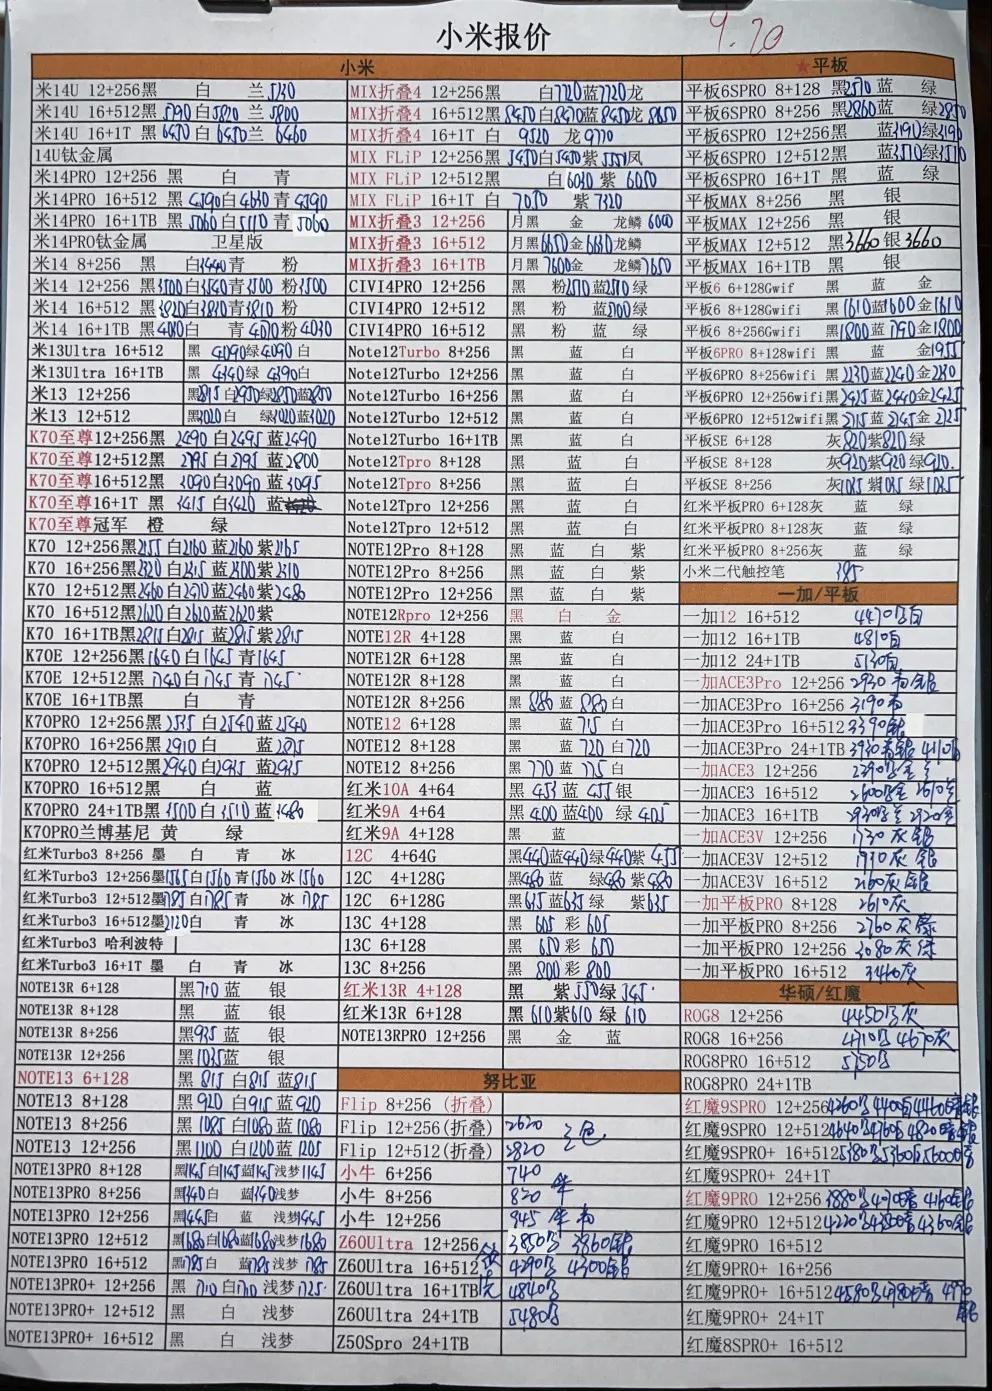 小米报价 9.20
小米
米14U 12+256黑 白 兰5730
米14U 16+512黑 5790白5820 兰 5800
米14U 16+1T 黑 6450 白 6450兰 6460
14U钛金属
米14PRO 12+256 黑 白 青
米14PRO 16+512 黑 4590白4630 青4590
米14PRO 16+1TB 黑 5060白5110 青5060
米14PRO钛金属 卫星版
米14 8+256 黑 白 青 粉
米14 12+256 黑3500白3540青3500 粉3500
米14 16+512 黑 白 青3810 粉
米14 16+1TB 黑 白 青 4020粉4030
米13Ultra 16+512 黑 4090绿4090 白
米13Ultra 16+1TB 黑 4340绿 4390白
米13 12+256 黑 白 绿 蓝
米13 12+512 黑3020白 绿3020蓝3020
K70至尊12+256黑 2490 白2495 蓝2490
K70至尊12+512黑 2795 白2795 蓝2800
K70至尊16+512黑 3090白3090 蓝3095
K70至尊16+1T 黑 3415 白3420 蓝
K70至尊冠军 橙 绿
K70 12+256黑2155 白2160 蓝2160 紫2165
K70 16+256黑2320 白2315 蓝2300紫2310
K70 12+512黑2460白2470 蓝2460紫2480
K70 16+512黑2620白2620蓝2620紫
K70 16+1TB黑2815白2815 蓝2815紫2815
K70E 12+256黑1640 白1645 青1645
K70E 12+512黑 1740白1745 青1745
K70E 16+1TB黑 白 青
K70PRO 12+256黑 2535 白2540蓝2540
K70PRO 16+256黑 2910 白 蓝2875
K70PRO 12+512黑2940白2945 蓝2915
K70PRO 16+512黑 白 蓝
K70PRO 24+1TB黑3500 白3510 蓝3480
K70PRO兰博基尼 黄 绿
红米Turbo3 8+256 墨 白 青 冰
红米Turbo3 12+256墨1565白1560 青1560 冰 1560
红米Turbo3 12+512墨1785白1785 青1785 冰 1785
红米Turbo3 16+512墨2120白 青 冰
红米Turbo3 哈利波特
红米Turbo3 16+1T 墨 白 青 冰
NOTE13R 6+128 黑710 蓝 银
NOTE13R 8+128 黑 蓝 银
NOTE13R 8+256 黑935 蓝 银
NOTE13R 12+256 黑1035蓝 银
NOTE13 6+128 黑 815 白815 蓝815
NOTE13 8+128 黑920 白915 蓝920
NOTE13 8+256 黑1085 白1080 蓝1080
NOTE13 12+256 黑1100 白1200 蓝1205
NOTE13PRO 8+128 黑1145白1145蓝1145 浅梦 1145
NOTE13PRO 8+256 黑1340白 蓝1340浅梦
NOTE13PRO 12+256 黑1445白 蓝 浅梦1445
NOTE13PRO 12+512 黑1680白1680蓝1680浅梦1680
NOTE13PRO 16+512 黑1785白 蓝1785 浅梦 1785
NOTE13PRO+ 12+256 黑 1710 白1710 浅梦 1725
NOTE13PRO+ 12+512 黑 白 浅梦
NOTE13PRO+ 16+512 黑 白 浅梦
MIX折叠4 12+256黑 白7720蓝7720龙
MIX折叠4 16+512黑 8450白8470蓝8450龙 8650
MIX折叠4 16+1T 白 9520 龙 9770
MIX FLiP 12+256黑 5450白5450紫 5550凤
MIX FLiP 12+512黑 白 6030 紫 6050
MIX FLiP 16+1T 白 7050 紫 7320
MIX折叠3 12+256 月黑 金 龙鳞 6000
MIX折叠3 16+512 月黑6650金 6630龙鳞
MIX折叠3 16+1TB 月黑 7600金 龙鳞7650
CIVI4PRO 12+256 黑 粉2510蓝2510 绿
CIVI4PRO 12+512 黑 粉 蓝2700绿
CIVI4PRO 16+512 黑 粉 蓝 绿
Note12Turbo 8+256 黑 蓝 白
Note12Turbo 12+256 黑 蓝 白
Note12Turbo 16+256 黑 蓝 白
Note12Turbo 12+512 黑 蓝 白
Note12Turbo 16+1TB 黑 蓝 白
Note12Tpro 8+128 黑 蓝 白
Note12Tpro 8+256 黑 蓝 白
Note12Tpro 12+256 黑 蓝 白
Note12Tpro 12+512 黑 蓝 白
NOTE12Pro 8+128 黑 蓝 白 紫
NOTE12Pro 8+256 黑 蓝 白 紫
NOTE12Pro 12+256 黑 蓝 白 紫
NOTE12Rpro 12+256 黑 白 金
NOTE12R 4+128 黑 蓝 白
NOTE12R 6+128 黑 蓝 白
NOTE12R 8+128 黑 蓝 白
NOTE12R 8+256 黑 880 蓝 880白
NOTE12 6+128 黑 蓝 715 白
NOTE12 8+128 黑 蓝 720 白720
NOTE12 8+256 黑 770 蓝 775 白
红米10A 4+64 黑 453 蓝 455 银
红米9A 4+64 黑 400 蓝400 绿 405
红米9A 4+128 黑 蓝
12C 4+64G 黑440蓝440绿440紫 455
12C 4+128G 黑480 蓝 绿480 紫480
12C 6+128G 黑635 蓝635 绿 紫635
13C 4+128 黑 605 彩 605
13C 6+128 黑 650 彩 650
13C 8+256 黑 800 彩 800
红米13R 4+128 黑 紫550绿545
红米13R 6+128 黑 610紫610 绿 610
NOTE13RPRO 12+256 黑 金 蓝
努比亚
Flip 8+256 (折叠)
Flip 12+256(折叠) 2620 三色
Flip 12+512(折叠) 2820
小牛 6+256 740
小牛 8+256 820
小牛 12+256 945
Z60Ultra 12+256 3850 3860银
Z60Ultra 16+512 4290 4300银
Z60Ultra 16+1TB 4840
Z60Ultra 24+1TB 5480
Z50Spro 24+1TB
★平板
平板6SPRO 8+128 黑2570 蓝 绿
平板6SPRO 8+256 黑2860蓝 绿2850
平板6SPRO 12+256黑 蓝3190绿3190
平板6SPRO 12+512黑 蓝3510绿3510
平板6SPRO 16+1T黑 蓝 绿
平板MAX 8+256 黑 银
平板MAX 12+256 黑 银
平板MAX 12+512 黑3660 银 3660
平板MAX 16+1TB 黑 银
平板6 6+128Gwif 黑 蓝 金
平板6 8+128Gwifi 黑1610蓝1600 金1610
平板6 8+256Gwifi 黑1800蓝 1790 金1800
平板6PRO 8+128wifi 黑 蓝 金1955
平板6PRO 8+256wifi 黑2230蓝2240金2230
平板6PRO 12+256wifi黑2425蓝2440金2425
平板6PRO 12+512wifi黑 蓝 金
平板SE 6+128 灰820紫820 绿
平板SE 8+128 灰920紫920 绿920
平板SE 8+256 灰1035 紫1035 绿1035
红米平板PRO 6+128灰 蓝 绿
红米平板PRO 8+128灰 蓝 绿
红米平板PRO 8+256灰 蓝 绿
小米二代触控笔 385
一加/平板
一加12 16+512 4470 白
一加12 16+1TB 4810白
一加12 24+1TB 5130白
一加ACE3Pro 12+256 2930 银
一加ACE3Pro 16+256 3190
一加ACE3Pro 16+512 3390银
一加ACE3Pro 24+1TB 3930青银 4110
一加ACE3 12+256 2290
一加ACE3 16+512 2600
一加ACE3 16+1TB 2930 2920金
一加ACE3V 12+256 1730 灰 银
一加ACE3V 12+512 1930灰 银
一加ACE3V 16+512 2160灰 银
一加平板PRO 8+128 2610灰
一加平板PRO 8+256 2760 灰 绿
一加平板PRO 12+256 3080灰 绿
一加平板PRO 16+512 3460灰
华硕/红魔
ROG8 12+256 4450 灰
ROG8 16+256 4710 4670灰
ROG8PRO 16+512 5750
ROG8PRO 24+1TB
红魔9SPRO 12+256
红魔9SPRO 12+512
红魔9SPRO+ 16+512
红魔9SPRO+ 24+1T
红魔9PRO 12+256
红魔9PRO 12+512
红魔9PRO 16+512
红魔9PRO+ 16+256
红魔9PRO+ 16+512
红魔9PRO+ 24+1T
红魔8SPRO+ 16+512